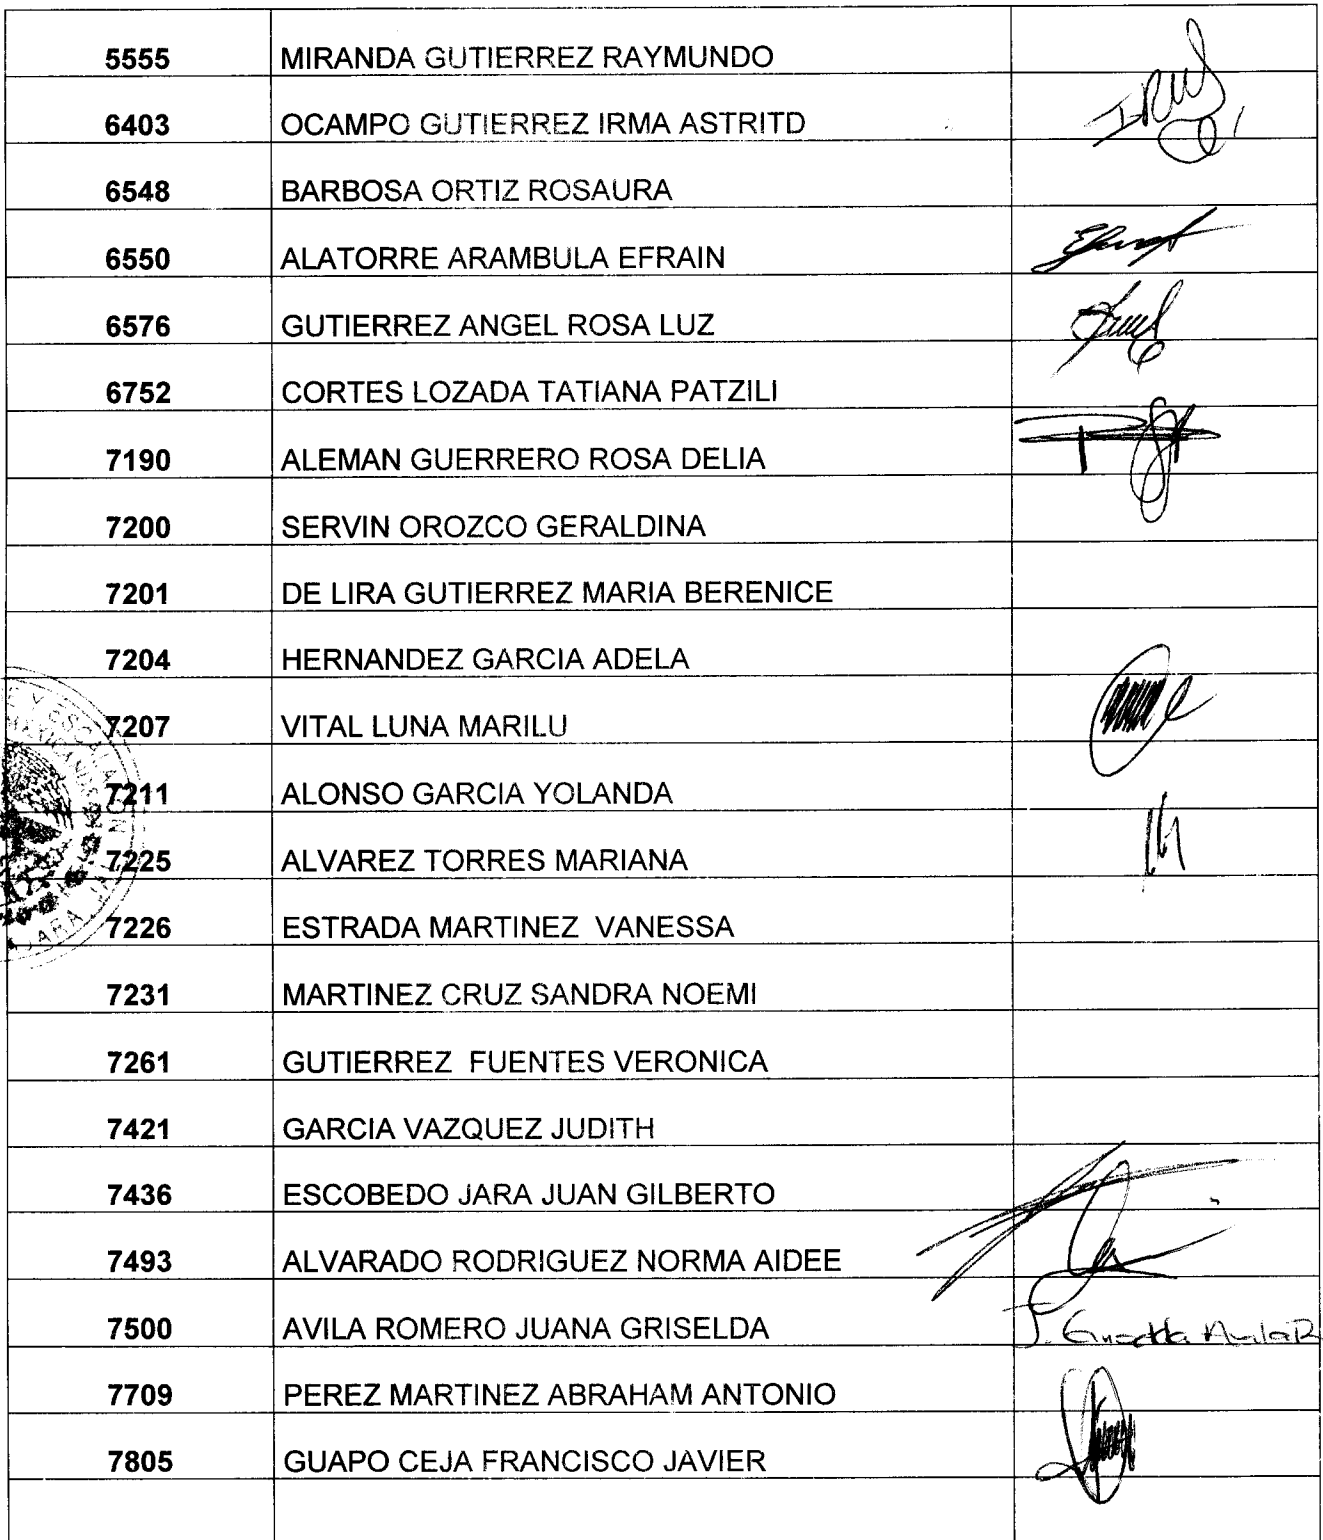 5555 MIRANDA GUTIERREZ RAYMUNDO
6403 OCAMPO GUTIERREZ IRMA ASTRITD
6548 BARBOSA ORTIZ ROSAURA
6550 ALATORRE ARAMBULA EFRAIN
6576 GUTIERREZ ANGEL ROSA LUZ
6752 CORTES LOZADA TATIANA PATZILI
7190 ALEMAN GUERRERO ROSA DELIA
7200 SERVIN OROZCO GERALDINA
7201 DE LIRA GUTIERREZ MARIA BERENICE
7204 HERNANDEZ GARCIA ADELA
7207 VITAL LUNA MARILU
7211 ALONSO GARCIA YOLANDA
7225 ALVAREZ TORRES MARIANA
7226 ESTRADA MARTINEZ VANESSA
7231 MARTINEZ CRUZ SANDRA NOEMI
7261 GUTIERREZ FUENTES VERONICA
7421 GARCIA VAZQUEZ JUDITH
7436 ESCOBEDO JARA JUAN GILBERTO
7493 ALVARADO RODRIGUEZ NORMA AIDEE
7500 AVILA ROMERO JUANA GRISELDA
7709 PEREZ MARTINEZ ABRAHAM ANTONIO
7805 GUAPO CEJA FRANCISCO JAVIER